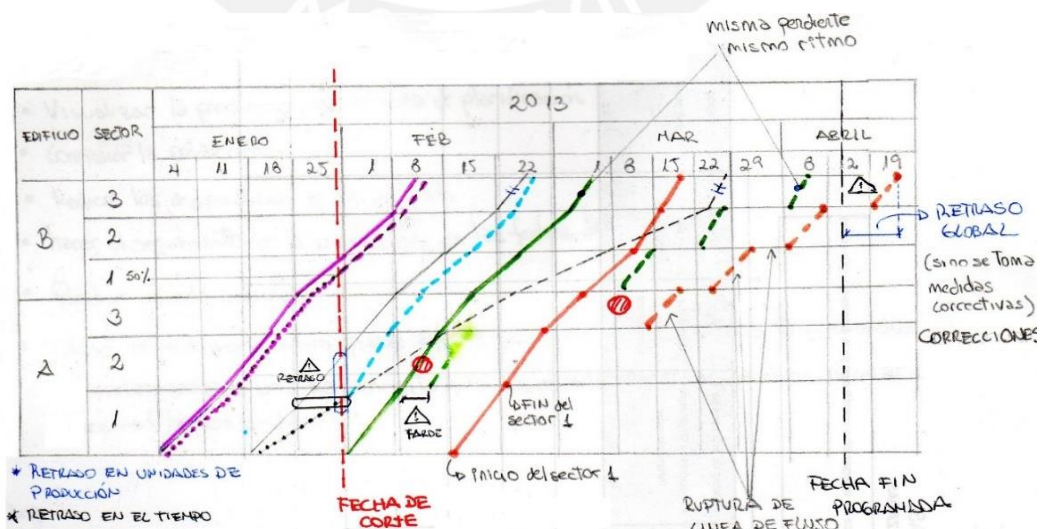 misma pendiente
mismo ritmo
2013
EDIFICIO SECTOR ENERO FEB MAR ABRIL
4 11 18 25 1 8 15 22 1 8 15 22 29 8 2 19
3
B 2
1 50%
3
A 2
1
RETRASO
TARDE
FIN del
sector 1
inicio del sector 1
RETRASO
GLOBAL
(si no se toma
medidas
correctivas)
CORRECCIONES
* RETRASO EN UNIDADES DE
PRODUCCIÓN
* RETRASO EN EL TIEMPO
FECHA DE
CORTE
RUPTURA DE
LINEA DE FLUJO
FECHA FIN
PROGRAMADA